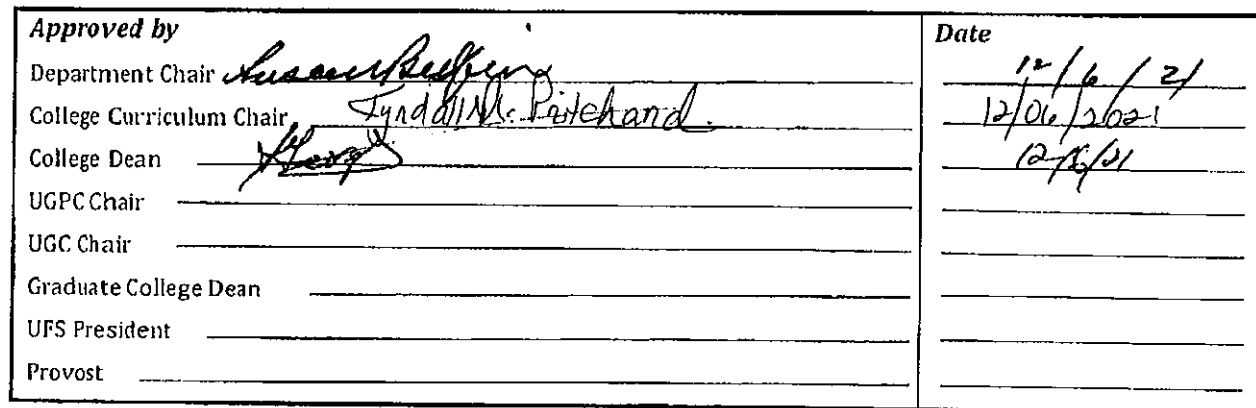 Approved by Date
Department Chair Susan 12/6/21
College Curriculum Chair 12/06/2021
College Dean
UGPC Chair
UGC Chair
Graduate College Dean
UFS President
Provost